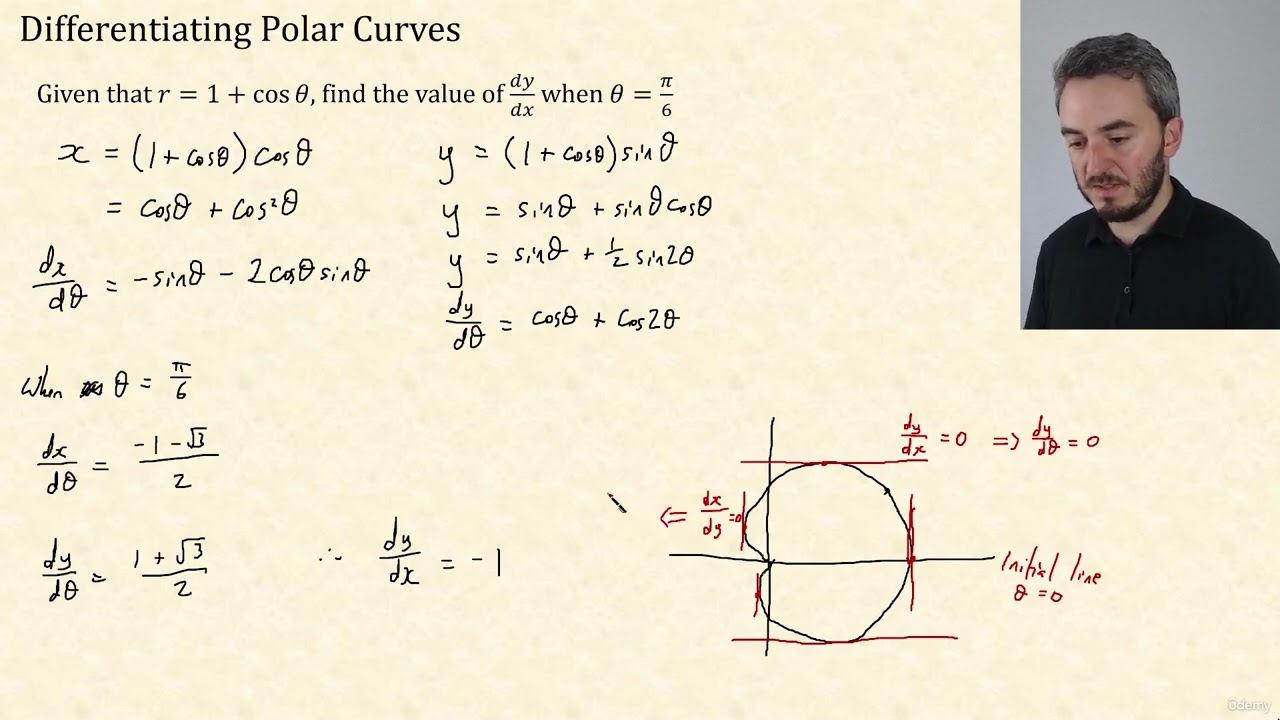 Differentiating Polar Curves
Given that r = 1 + cos θ, find the value of dy/dx when θ = π/6
x = (1 + cosθ) cosθ
= cosθ + cos²θ
dx/dθ = -sinθ - 2cosθ sinθ
y = (1 + cosθ) sinθ
y = sinθ + sinθ cosθ
y = sinθ + 1/2 sin2θ
dy/dθ = cosθ + cos2θ
When θ = π/6
dx/dθ = (-1 - √3)/2
dy/dθ = (1 + √3)/2
∴ dy/dx = -1
dy/dx = 0 => dy/dθ = 0
<= dx/dy = 0
Initial line
θ = 0
ûdemy